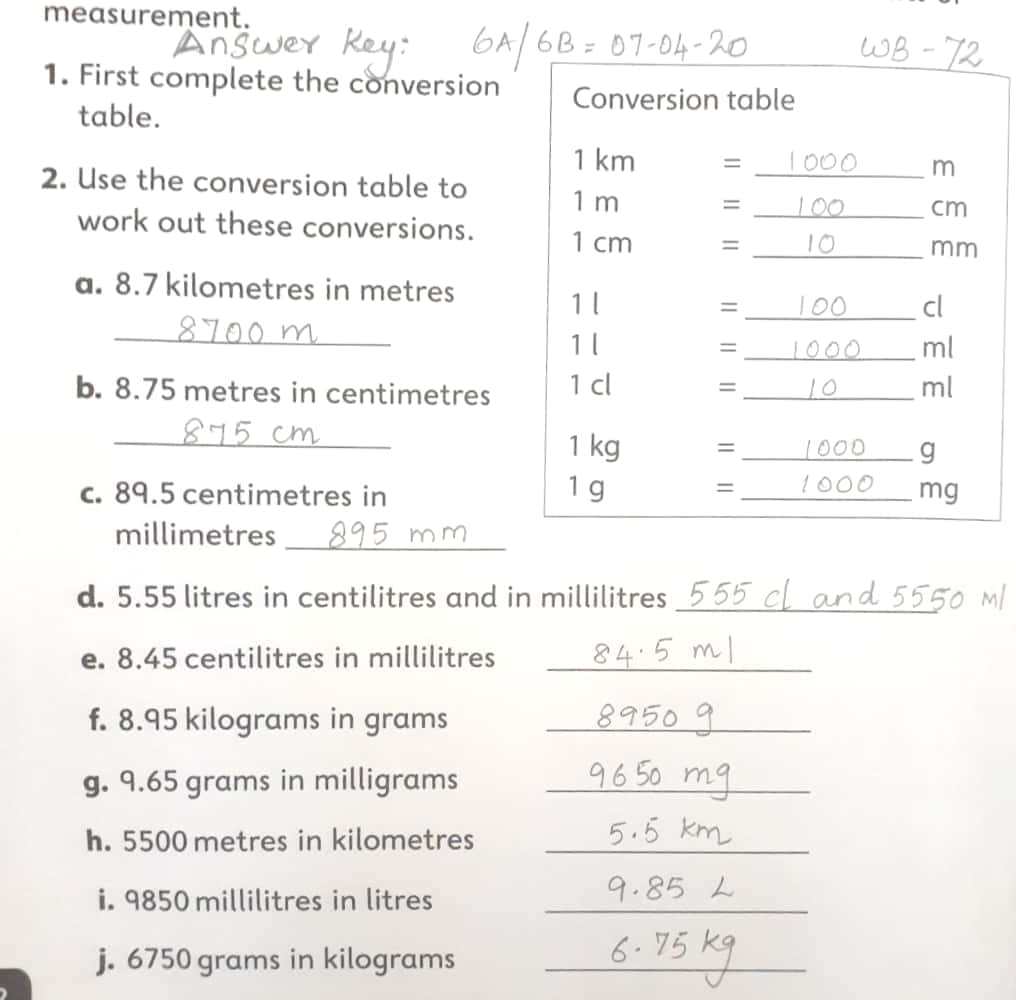 measurement.
Answer Key: 6A/6B = 07-04-20 WB - 72
1. First complete the conversion
table.
2. Use the conversion table to
work out these conversions.
a. 8.7 kilometres in metres
8700 m
b. 8.75 metres in centimetres
875 cm
c. 89.5 centimetres in
millimetres 895 mm
Conversion table
1 km = 1000 m
1 m = 100 cm
1 cm = 10 mm
1 l = 100 cl
1 l = 1000 ml
1 cl = 10 ml
1 kg = 1000 g
1 g = 1000 mg
d. 5.55 litres in centilitres and in millilitres 555 cl and 5550 ml
e. 8.45 centilitres in millilitres 84.5 ml
f. 8.95 kilograms in grams 8950 g
g. 9.65 grams in milligrams 9650 mg
h. 5500 metres in kilometres 5.5 km
i. 9850 millilitres in litres 9.85 L
j. 6750 grams in kilograms 6.75 kg